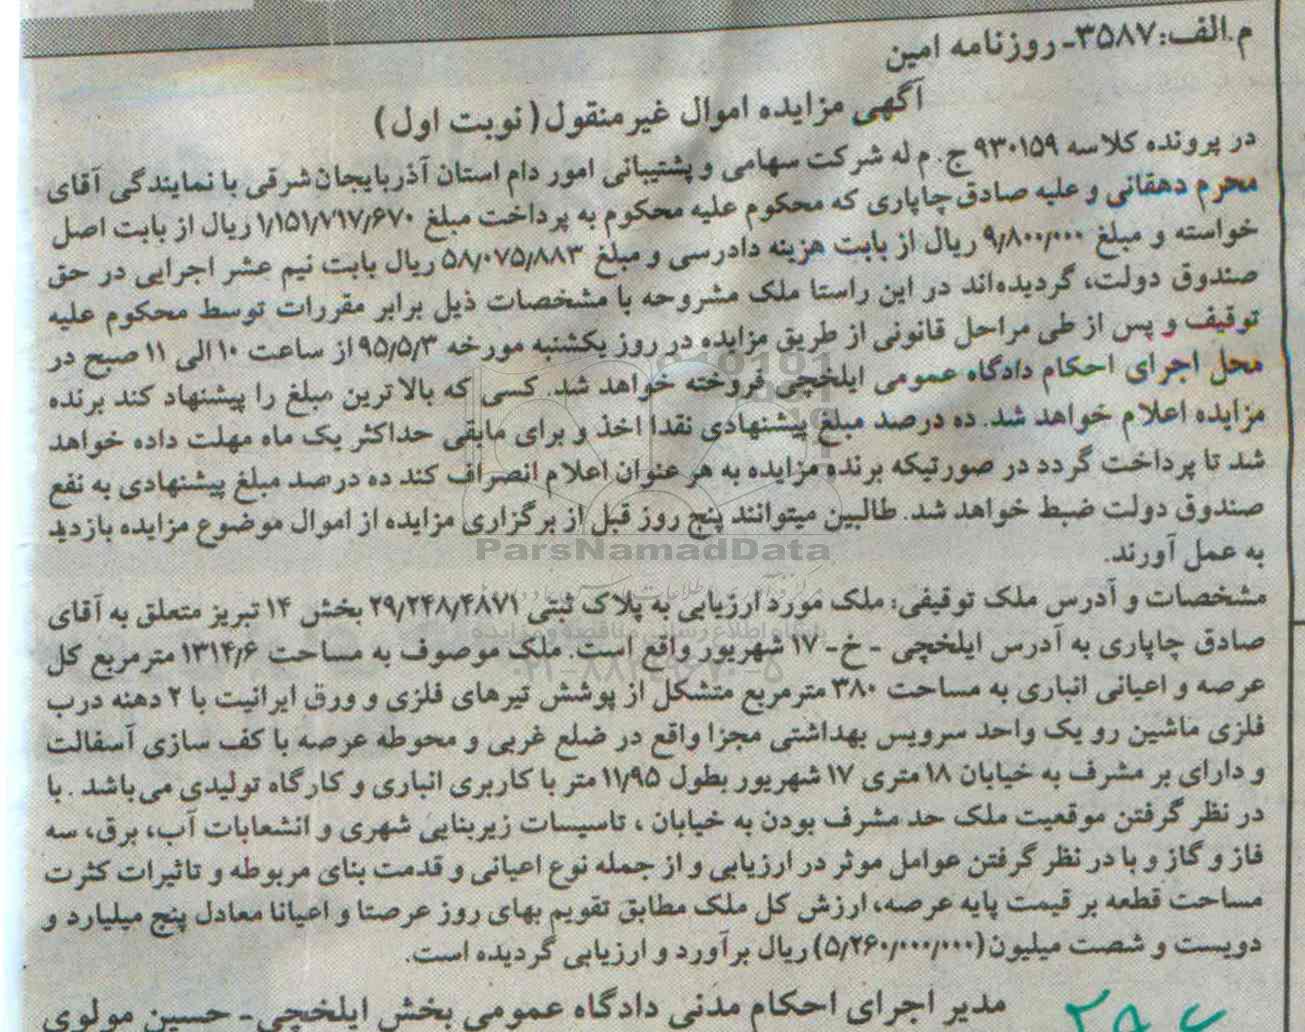 م.الف:۳۵۸۷-روزنامه امین
آگهی مزایده اموال غیرمنقول(نوبت اول)
در پرونده کلاسه ۹۳۰۱۵۹ ج. م له شرکت سهامی و پشتیبانی امور دام استان آذربایجان‌شرقی با نمایندگی آقای
محرم دهقانی و علیه صادق چاپاری که محکوم علیه محکوم به پرداخت مبلغ ۱/۱۵۱/۷۱۷/۶۷۰ ریال از بابت اصل
خواسته و مبلغ ۹/۸۰۰/۰۰۰ ریال از بابت هزینه دادرسی و مبلغ ۵۸/۰۷۵/۸۸۳ ریال بابت نیم عشر اجرایی در حق
صندوق دولت، گردیده‌اند در این راستا ملک مشروحه با مشخصات ذیل برابر مقررات توسط محکوم علیه
توقیف و پس از طی مراحل قانونی از طریق مزایده در روز یکشنبه مورخه ۹۵/۵/۳ از ساعت ۱۰ الی ۱۱ صبح در
محل اجرای احکام دادگاه عمومی ایلخچی فروخته خواهد شد. کسی که بالا ترین مبلغ را پیشنهاد کند برنده
مزایده اعلام خواهد شد. ده درصد مبلغ پیشنهادی نقدا اخذ و برای مابقی حداکثر یک ماه مهلت داده خواهد
شد تا پرداخت گردد در صورتیکه برنده مزایده به هر عنوان اعلام انصراف کند ده درصد مبلغ پیشنهادی به نفع
صندوق دولت ضبط خواهد شد. طالبین میتوانند پنج روز قبل از برگزاری مزایده از اموال موضوع مزایده بازدید
به عمل آورند.
ParsNamadData
مشخصات و آدرس ملک توقیفی: ملک مورد ارزیابی به پلاک ثبتی ۲۹/۲۴۸/۴۸۷۱ بخش ۱۴ تبریز متعلق به آقای
صادق چاپاری به آدرس ایلخچی -خ- ۱۷ شهریور واقع است. ملک موصوف به مساحت ۱۳۱۴/۶ مترمربع کل
عرصه و اعیانی انباری به مساحت ۳۸۰ مترمربع متشکل از پوشش تیرهای فلزی و ورق ایرانیت با ۲ دهنه درب
فلزی ماشین رو یک واحد سرویس بهداشتی مجزا واقع در ضلع غربی و محوطه عرصه با کف سازی آسفالت
و دارای بر مشرف به خیابان ۱۸ متری ۱۷ شهریور بطول ۱۱/۹۵ متر با کاربری انباری و کارگاه تولیدی می‌باشد . با
در نظر گرفتن موقعیت ملک حد مشرف بودن به خیابان ، تاسیسات زیربنایی شهری و انشعابات آب، برق، سه
فاز و گاز و با در نظر گرفتن عوامل موثر در ارزیابی و از جمله نوع اعیانی و قدمت بنای مربوطه و تاثیرات کثرت
مساحت قطعه بر قیمت پایه عرصه، ارزش کل ملک مطابق تقویم بهای روز عرصتا و اعیانا معادل پنج میلیارد و
دویست و شصت میلیون(۵/۲۶۰/۰۰۰/۰۰۰) ریال برآورد و ارزیابی گردیده است.
مدیر اجرای احکام مدنی دادگاه عمومی بخش ایلخچی- حسین مولوی